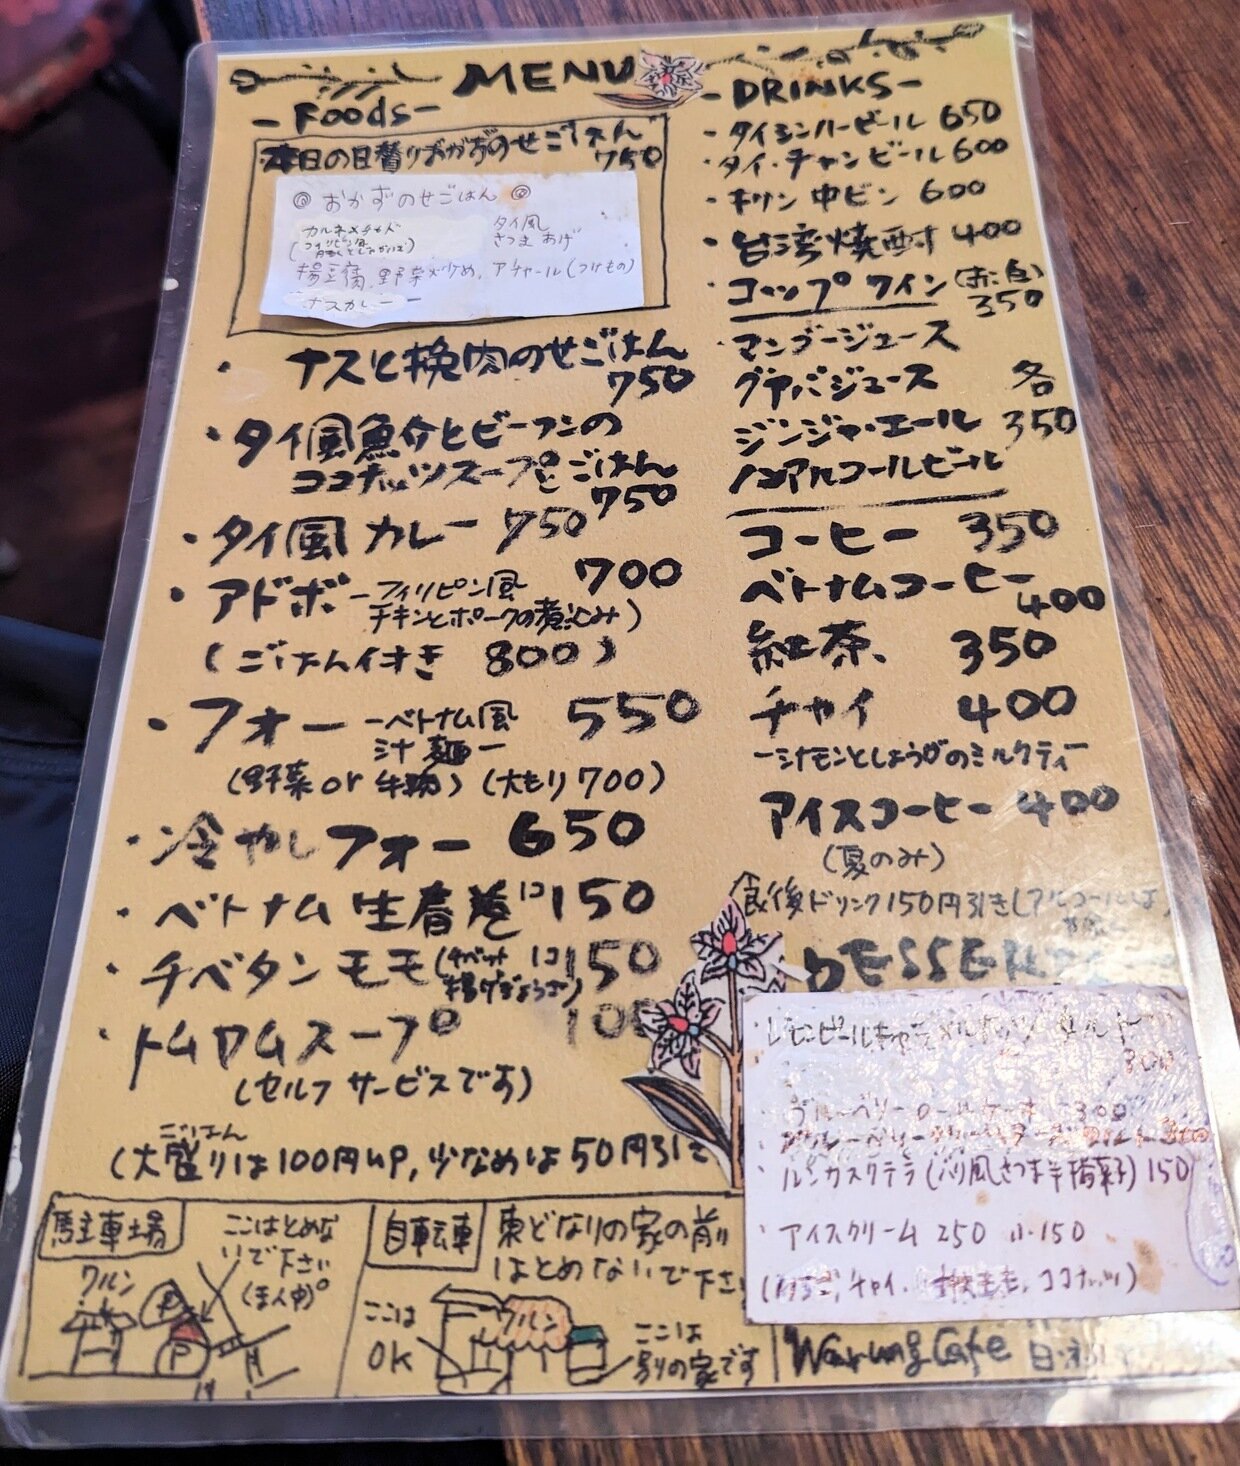 MENU
-Foods-
本日の日替りおかずのせごはん
750
◎ おかずのせごはん ◎
カルネメチャド
(フィリピン風
タイ風
さつまあげ
揚豆腐、野菜炒め、アチャール(つけもの)
ナスカレー
・ナスと挽肉のせごはん
750
・タイ風魚介とビーフンの
ココナッツスープとごはん
750
・タイ風カレー 750
・アドボ -フィリピン風 700
チキンとポークの煮込み)
(ごはん付き 800)
・フォー -ベトナム風 550
汁麺-
(野菜 or 牛肉) (大もり700)
・冷やしフォー 650
・ベトナム生春巻 1コ 150
・チベタンモモ (チベット 1コ 150
揚げぎょうざ)
・トムヤムスープ 100
(セルフサービスです)
ごはん
(大盛りは100円up, 少なめは50円引き
-DRINKS-
・タイシンハービール 650
・タイ・チャンビール 600
・キリン中ビン 600
・台湾焼酎 400
・コップワイン (赤、白)
350
マンゴージュース
グァバジュース 各
ジンジャ・エール 350
ノンアルコールビール
コーヒー 350
ベトナムコーヒー
400
紅茶 350
チャイ 400
-シナモンとしょうがのミルクティー
アイスコーヒー 400
(夏のみ)
食後ドリンク150円引き(アルコールは
DESSERT
300
・ブルーベリーロールケーキ 300
・ルンカスクテラ (バリ風さつま芋揚菓子) 150
・アイスクリーム 250 小・150
チャイ、 ココナッツ)
駐車場
ここはとめな
いで下さい
ワルン
P
P
自転車
東どなりの家の前
はとめないで下さい
ここは
OK
ワルン
ここは
別の家です
Warung Cafe